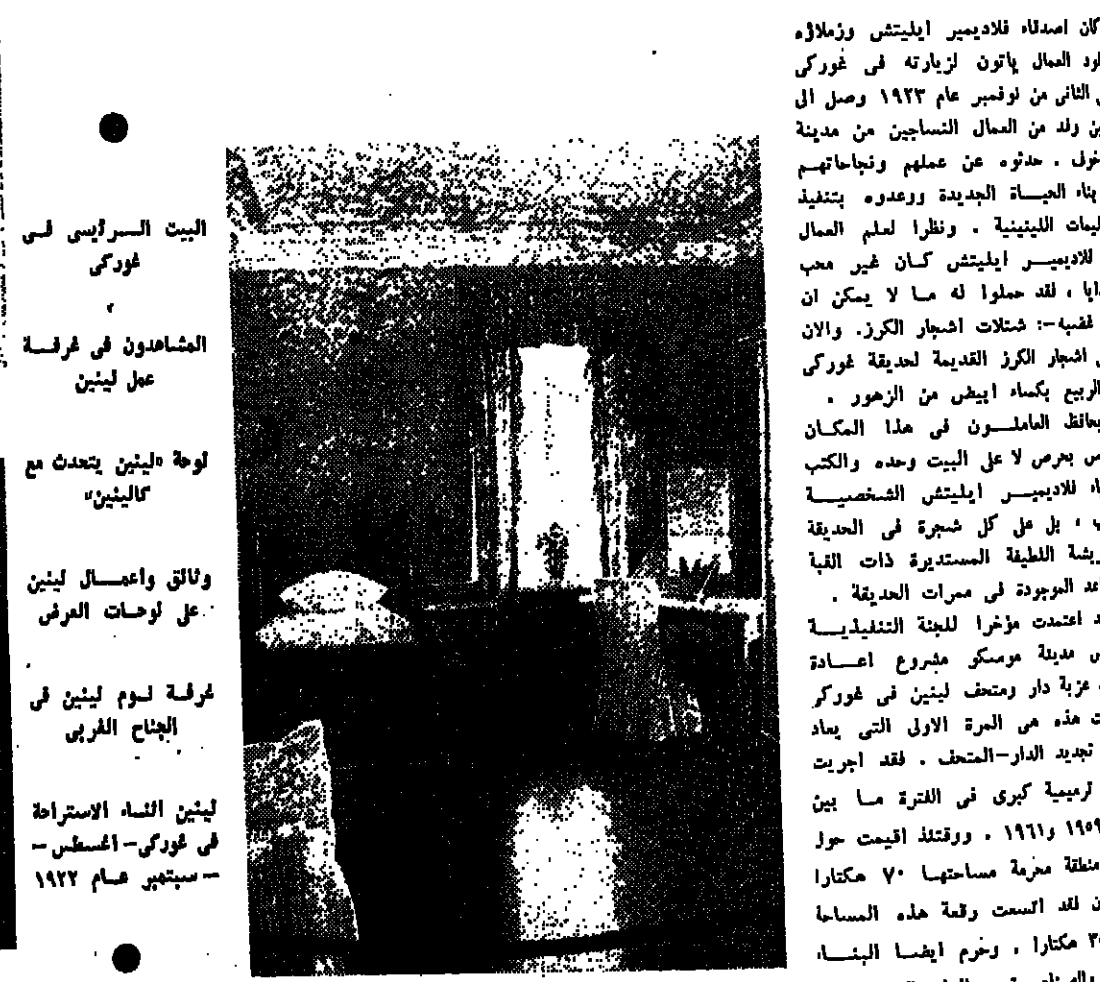 كان اصدقاء فلاديمير ايليتش وزملاؤه
العمال ياتون لزيارته فى غوركى
الثانى من نوفمبر عام ١٩٢٣ وصل الى
وفد من العمال النساجين من مدينة
حدثوه عن عملهم ونجاحاتهم
بناء الحياة الجديدة ووعدوه بتنفيذ
اللينينية . ونظرا لعلم العمال
ايليتش كان غير محب
لقد حملوا له ما لا يمكن ان
غضبه-: شتلات اشجار الكرز. والان
اشجار الكرز القديمة لحديقة غوركى
الربيع بكساء ابيض من الزهور .
العاملون فى هذا المكان
بحرص لا على البيت وحده والكتب
فلاديمير ايليتش الشخصية
، بل على كل شجرة فى الحديقة
اللطيفة المستديرة ذات القبة
الموجودة فى ممرات الحديقة .
اعتمدت مؤخرا للجنة التنفيذية
مدينة موسكو مشروع اعادة
عزبة دار ومتحف لينين فى غوركى
هذه هى المرة الاولى التى يعاد
تجديد الدار-المتحف . فقد اجريت
ترميمية كبرى فى الفترة ما بين
١٩٥٩ و١٩٦١ . ووقتئذ اقيمت حول
منطقة محرمة مساحتها ٧٠ هكتارا
لقد اتسعت رقعة هذه المساحة
هكتارا . وحرم ايضا البناء
البيت السرئيسى فى
غوركى
المشاهدون فى غرفة
عمل لينين
لوحة «لينين يتحدث مع
كالينين»
وثائق واعمال لينين
على لوحات العرض
غرفة نوم لينين فى
الجناح الغربى
لينين اثناء الاستراحة
فى غوركى - اغسطس -
- سبتمبر عام ١٩٢٢